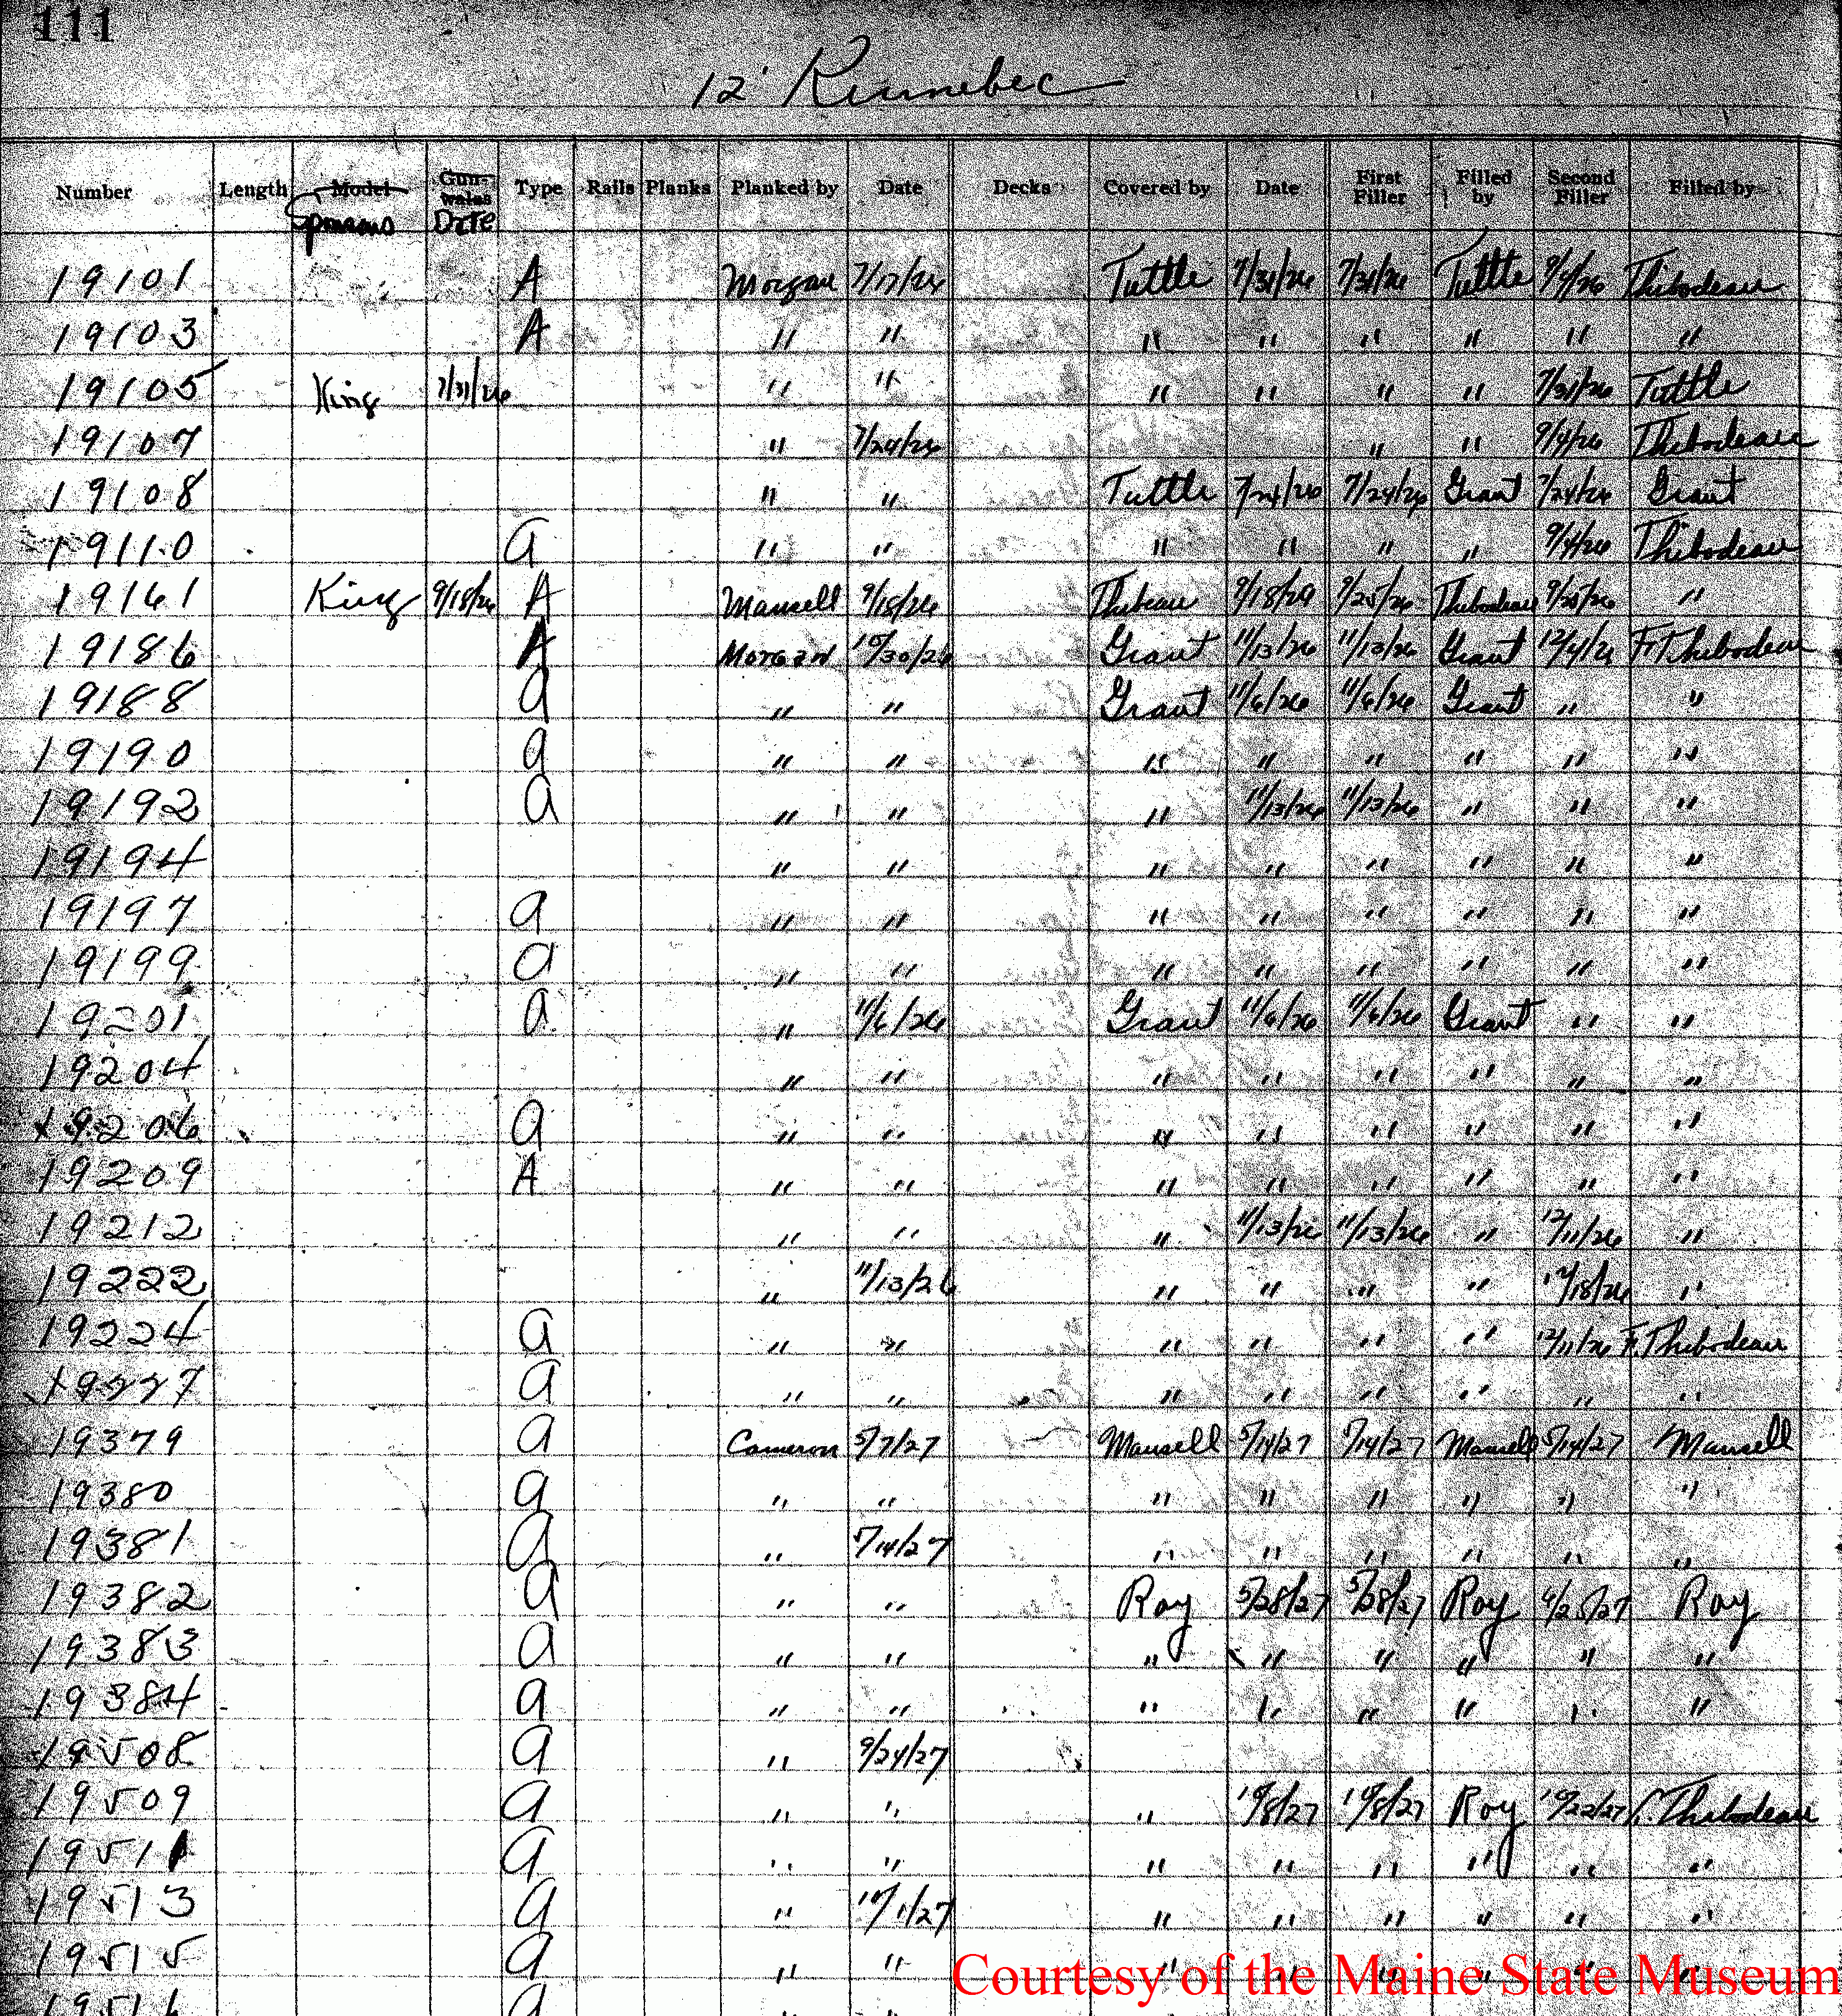 111
12' Kennebec
Number Length Model Gunwales Type Rails Planks Planked by Date Decks Covered by Date First Filler Filled by Second Filler Filled by
Sponsons Date
19101 A Morgan 7/17/26 Tuttle 7/31/26 7/31/26 Tuttle 9/4/26 Thibodeau
19103 A " " " " " " " "
19105 King 7/31/26 " " " " " " 7/31/26 Tuttle
19107 " 7/24/26 " " 9/4/26 Thibodeau
19108 " " Tuttle 7/24/26 7/24/26 Grant 7/24/26 Grant
19110 a " " " " " " 9/4/26 Thibodeau
19161 King 9/18/26 A Mansell 9/18/26 9/18/26 9/25/26 Thibodeau 9/25/26 "
19186 A Morgan 10/30/26 Grant 11/13/26 11/13/26 Grant 12/4/26 F. Thibodeau
19188 a " " Grant 11/6/26 11/6/26 Grant " "
19190 a " " " " " " " "
19192 a " " " 11/13/26 11/13/26 " " "
19194 " " " " " " " "
19197 a " " " " " " " "
19199 a " " " " " " " "
19201 a " 11/6/26 Grant 11/6/26 11/6/26 Grant " "
19204 " " " " " " " "
19206 a " " " " " " " "
19209 A " " " " " " " "
19212 " " " 11/13/26 11/13/26 " 12/11/26 "
19222 " 11/13/26 " " " " 12/18/26 "
19224 a " " " " " " 12/11/26 F. Thibodeau
19227 a " " " " " " " "
19379 a Cameron 5/7/27 Mansell 5/14/27 5/14/27 Mansell 5/14/27 Mansell
19380 a " " " " " " " "
19381 a " 5/14/27 " " " " " "
19382 a " " Roy 5/28/27 5/28/27 Roy 6/25/27 Roy
19383 a " " " " " " " "
19384 a " " " " " " " "
19508 a " 9/24/27
19509 a " " " 10/8/27 10/8/27 Roy 10/22/27 Thibodeau
19511 a " " " " " " " "
19513 a " 10/1/27 " " " " " "
19515 a " " " " " " " "
Courtesy of the Maine State Museum
a